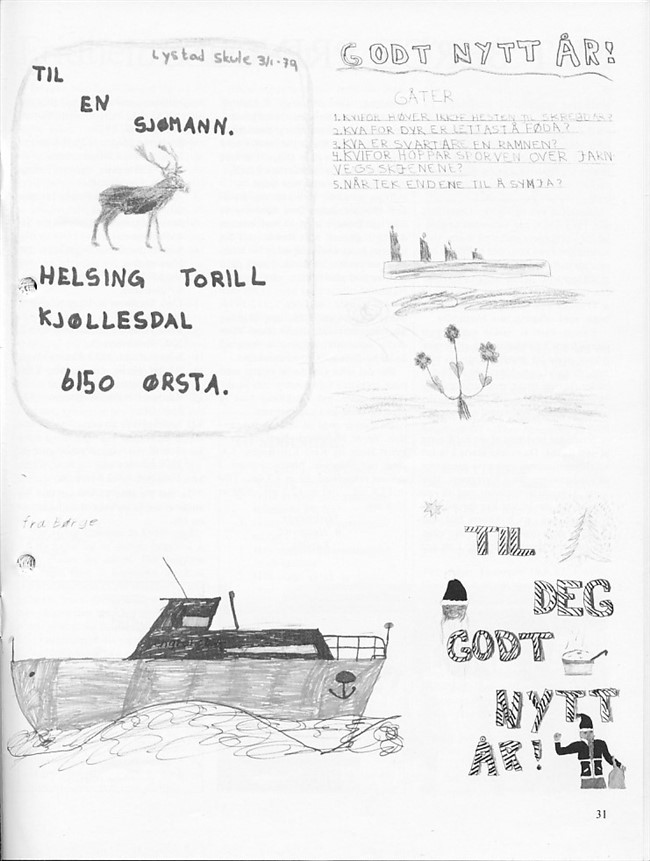 Lystad skule 3/1-79
TIL
EN
SJØMANN.
HELSING TORILL
KJØLLESDAL
6150 ØRSTA.
GODT NYTT ÅR!
GÅTER
1. KVIFOR HØVER IKKJE HESTEN TIL SKREDDAR?
2. KVA FOR DYR ER LETTAST Å FØDA?
3. KVA ER SVARTARE EN RAMNEN?
4. KVIFOR HOPPAR SPORVEN OVER JARN
VEGSSKJENENE?
5. NÅR TEK ENDENE TIL Å SYMJA?
fra børge
TIL
DEG
GODT
NYTT
ÅR!
31